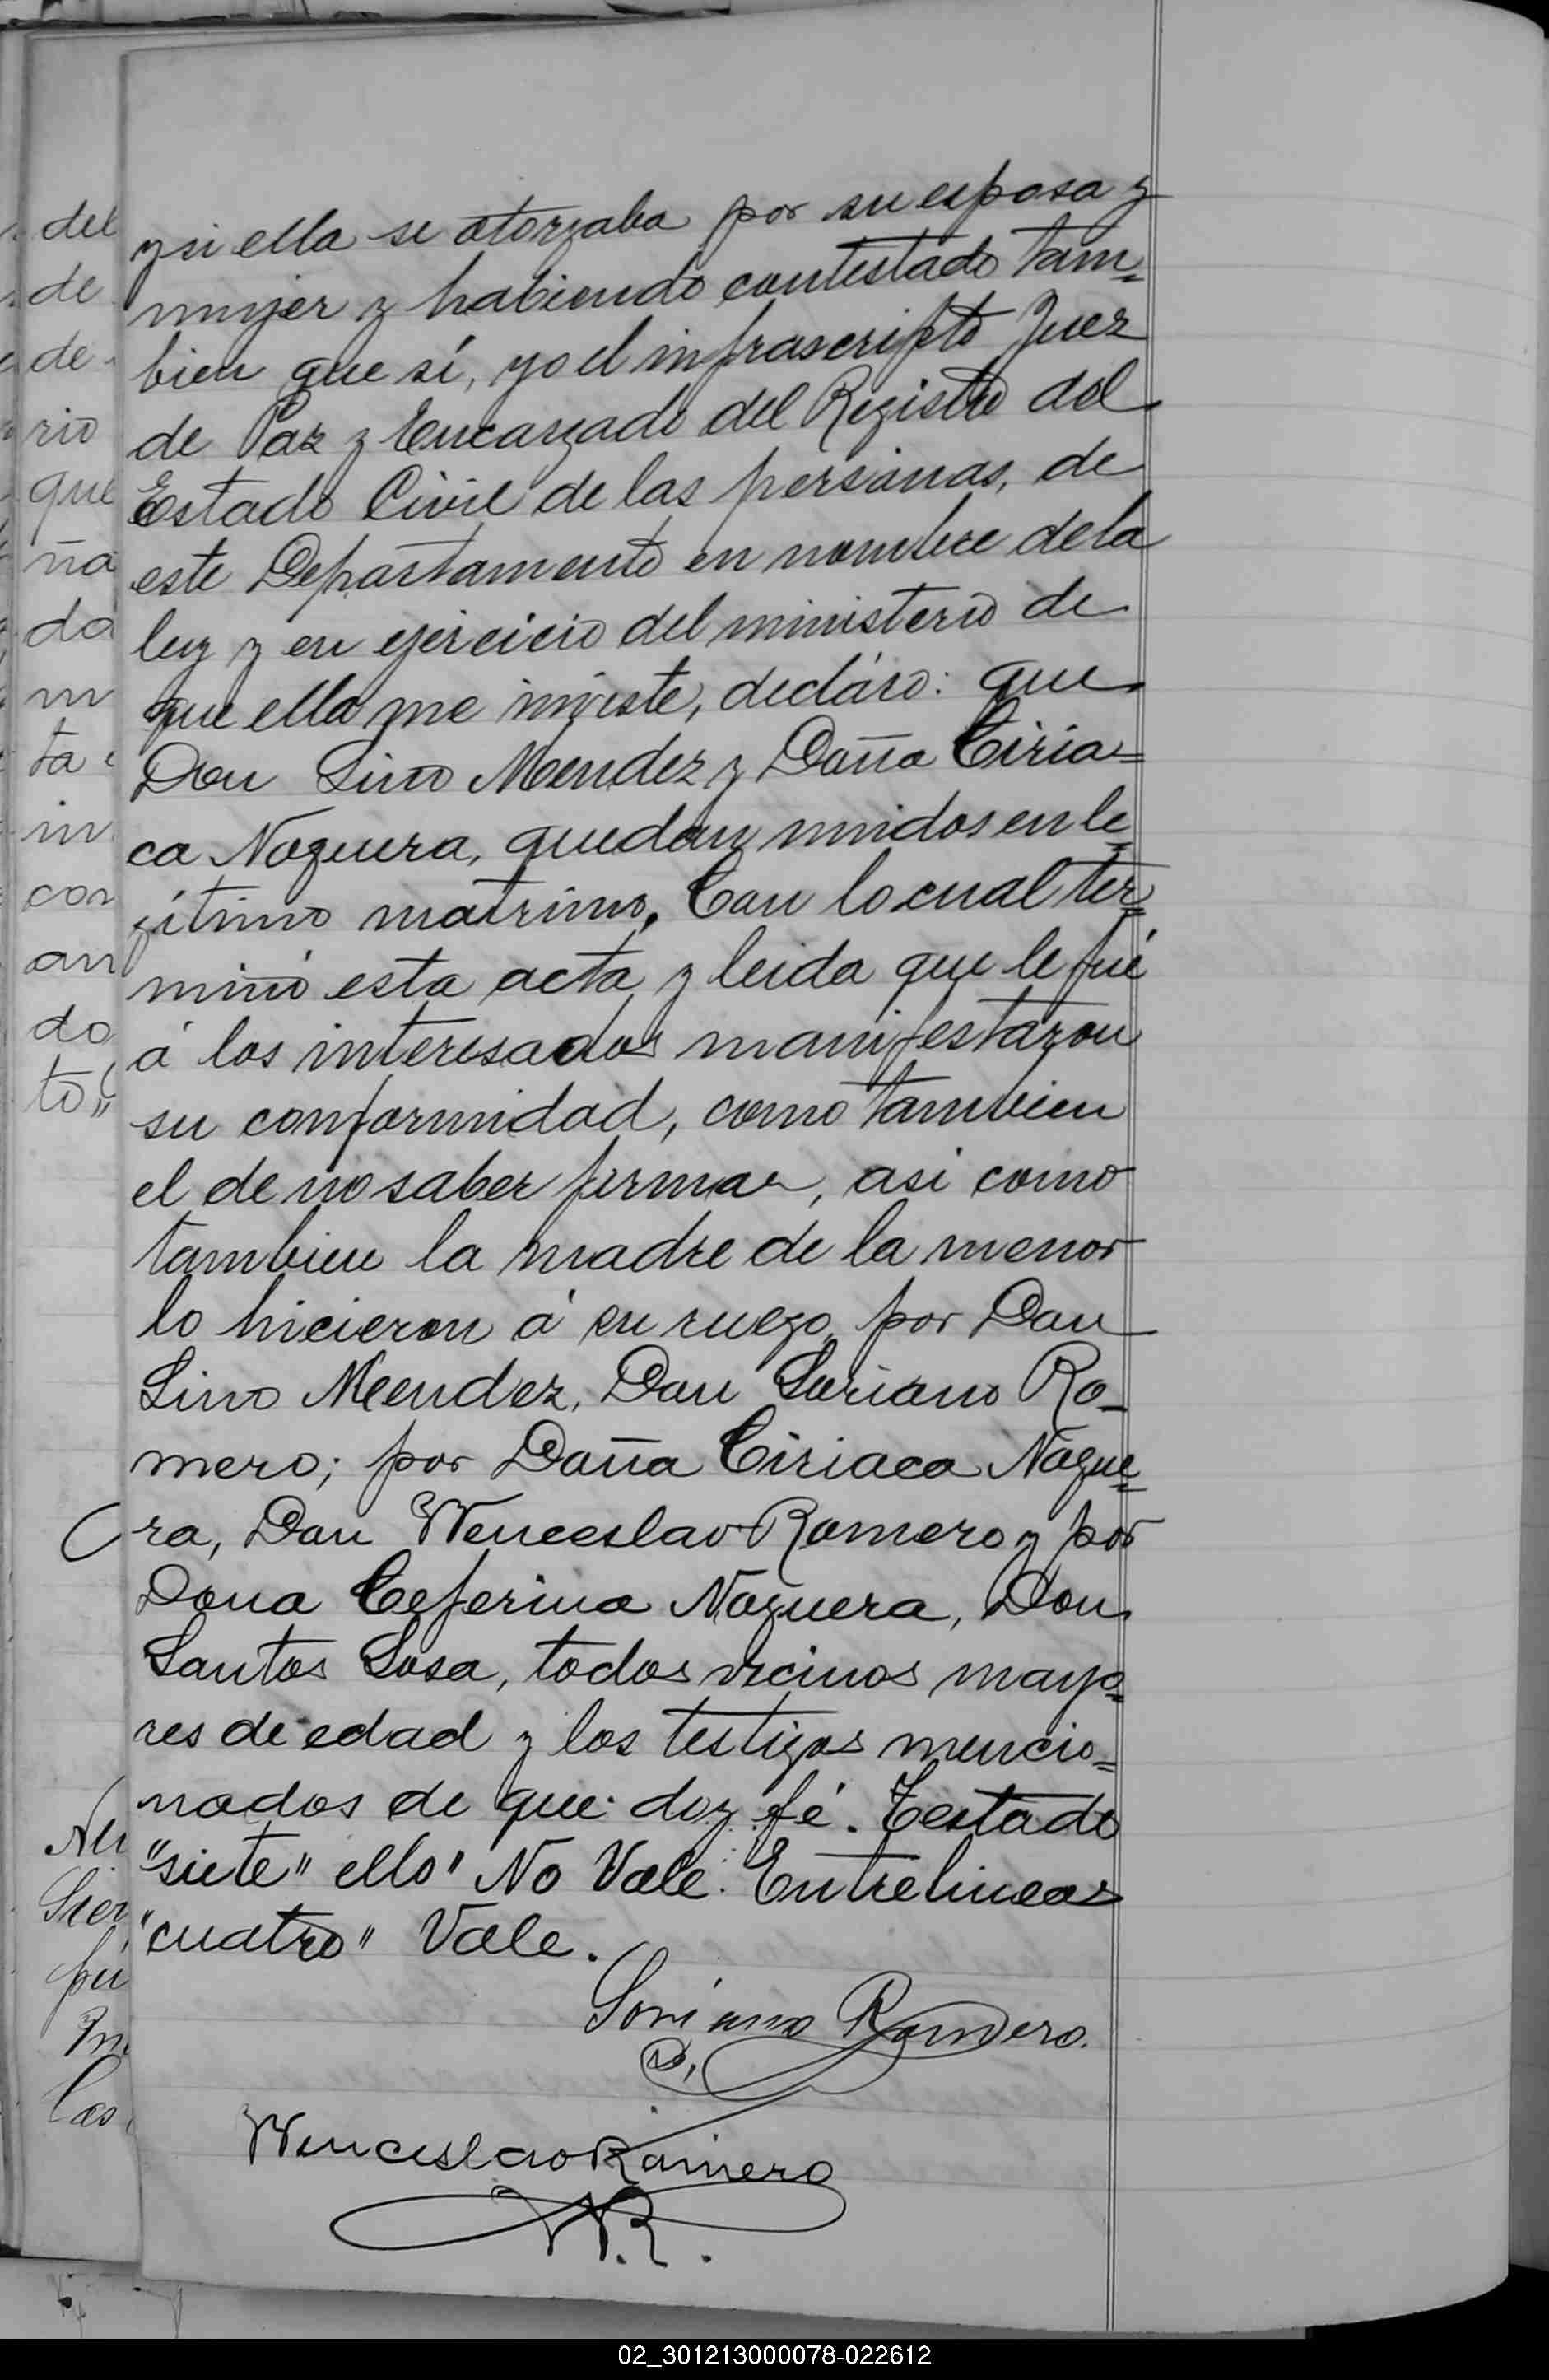 y si ella se otorgaba por su esposa y
mujer y habiendo contestado tam=
bien que sí, yo el infrascripto Juez
de Paz y Encargado del Registro del
Estado Civil de las personas, de
este Departamento en nombre de la
ley y en ejercicio del ministerio de
que ella me inviste, decláro: que
Don Lino Mendez y Doña Ciria=
ca Noguera, quedan unidos en le=
gítimo matrimo. Con lo cual ter=
minó esta acta y leida que le fué
á los interesados manifestaron
su conformidad, como tambien
el de no saber firmar, asi como
tambien la madre de la menor
lo hicieron á su ruego, por Don
Lino Mendez, Don Soriano Ro-
mero; por Doña Ciriaca Nogue=
ra, Don Wenceslao Romero y por
Dona Ceferina Noguera, Don
Santos Sosa, todos vecinos mayo=
res de edad y los testigos mencio=
nados de que doy fé. Testado
"siete" ello" No Vale. Entrelineas
"cuatro" Vale.
Soriano Romero.
Wenceslao Romero
W.R.
del
de
de
rio
que
ña
da
m
ta
in
con
an
do
to"
02_301213000078-022612